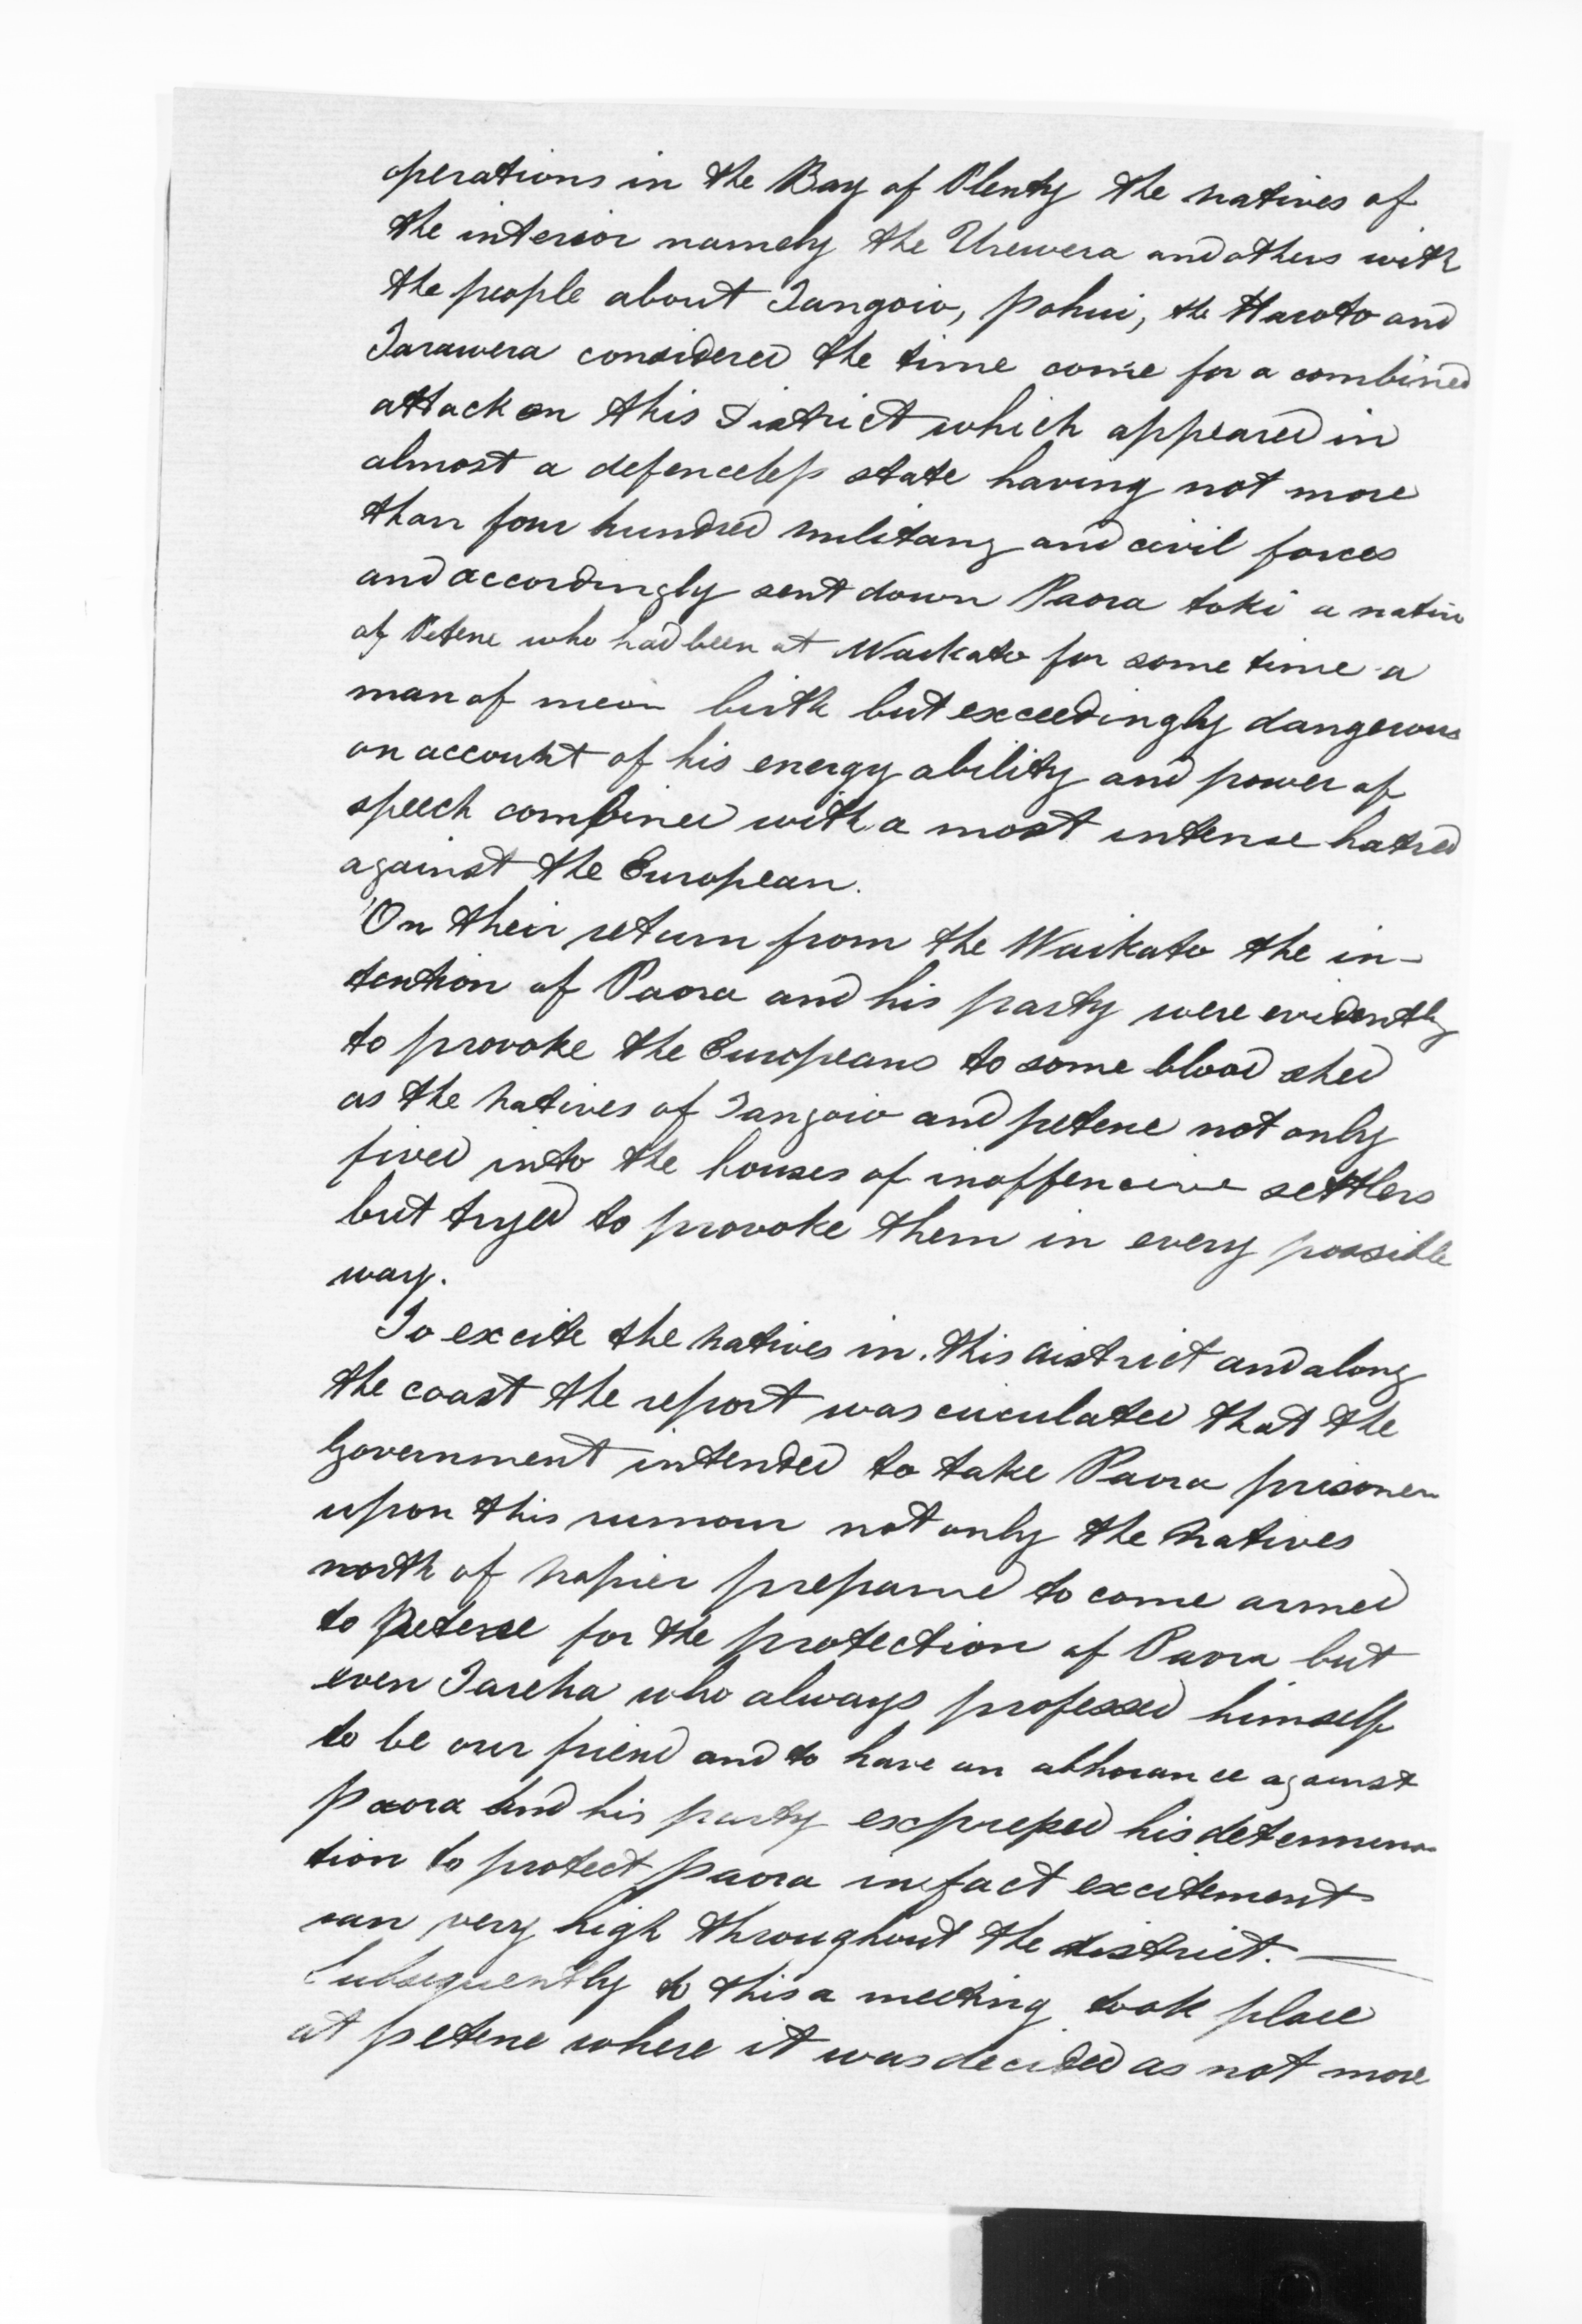 operations in the Bay of Plenty the natives of
the interior namely the Urewera and others with
the people about Tangoio, Pohui, the Haroto and
Tarawera considered the time come for a combined
attack on this District which appeared in
almost a defenceless state having not more
than four hundred military and civil forces
and accordingly sent down Paora toki a native
of Petene who had been at Waikato for some time a
man of mean birth but exceedingly dangerous
on account of his energy ability and power of
speech combined with a most intense hatred
against the European.
On their return from the Waikato the in-
tention of Paora and his party were evidently
to provoke the Europeans to some blood shed
as the natives of Tangoio and petene not only
fired into the houses of inoffensive settlers
but tryed to provoke them in every possible
way.
To excite the natives in this district and along
the coast the report was circulated that the
Government intended to take Paora prisoner
upon this rumour not only the natives
north of Napier prepared to come armed
to Petene for the protection of Paora but
even Tareha who always professed himself
to be our friend and to have an abhorance against
Paora and his party expressed his determina-
tion to protect Paora in fact excitement
ran very high throughout the district. —
Subsequently to this a meeting took place
at petene where it was decided as not more